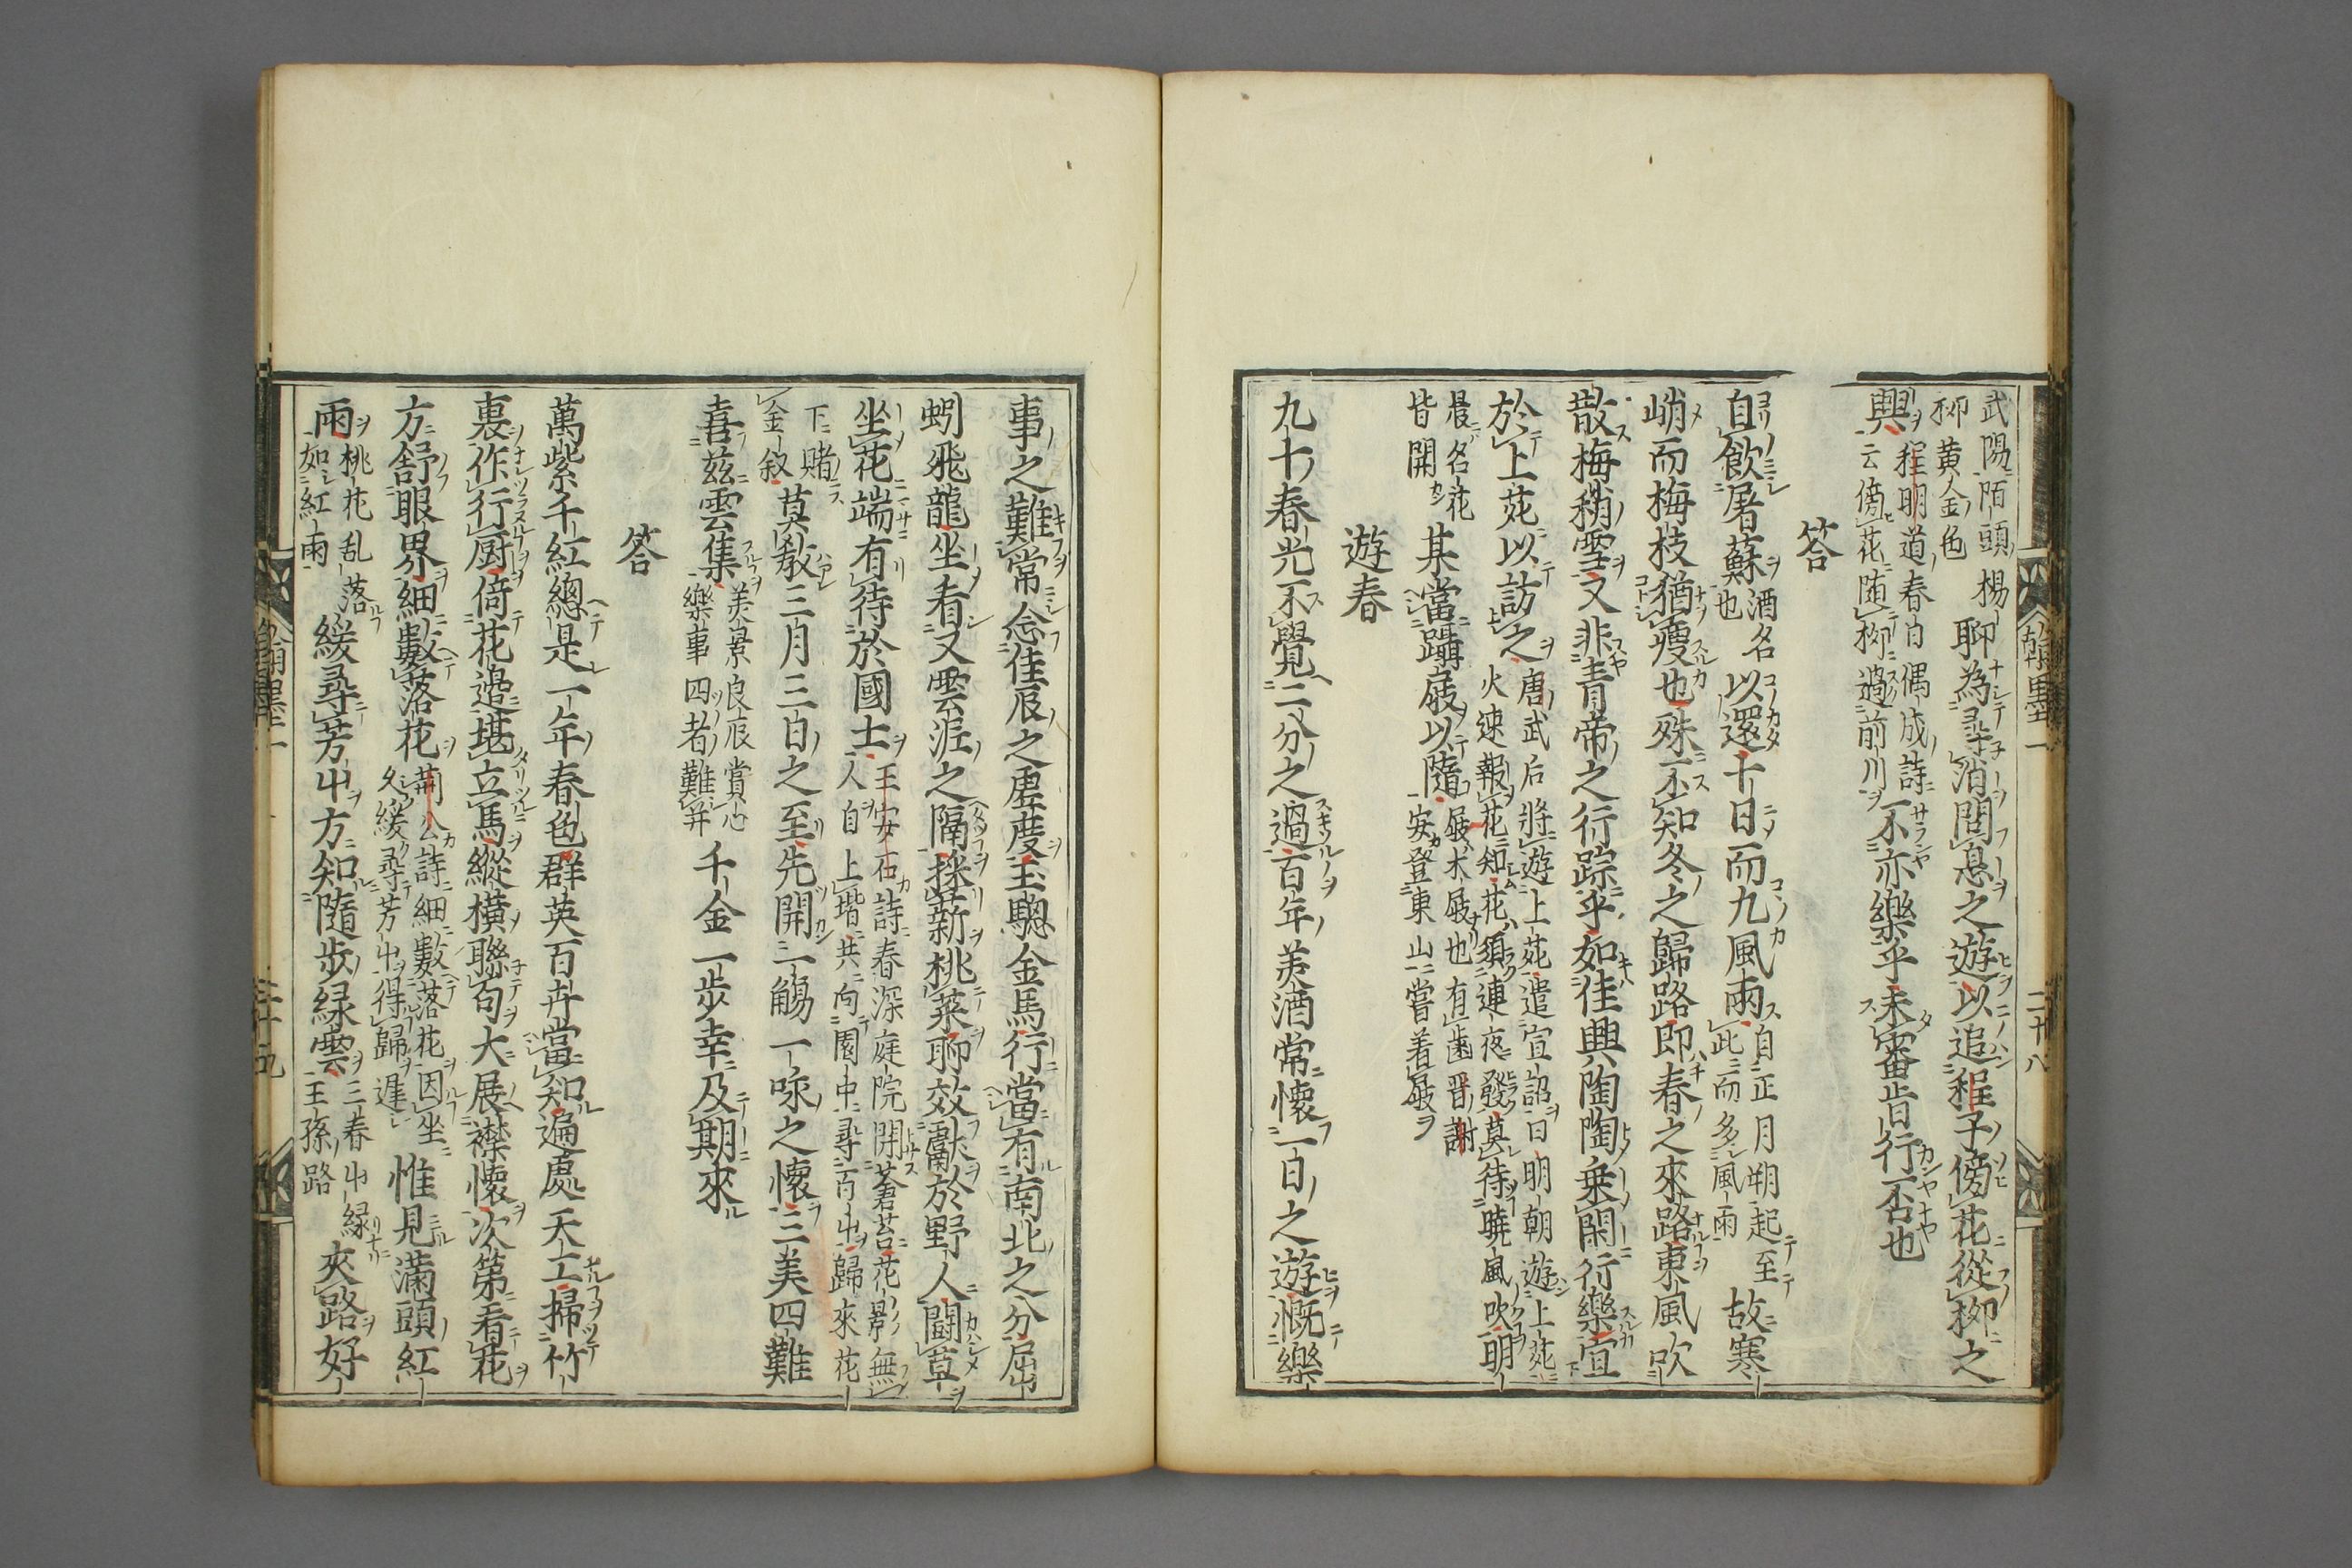 武陽陌頭楊
柳黄金色
聊為尋消問息之遊以追程子傍花從柳之
興
程明道春日偶成詩
云傍花随柳過前川
不亦樂乎未審肯行否也
答
自飲屠蘇
酒名
也
以還十日而九風雨
自正月朔起至
此而多風雨
故寒
峭而梅枝猶瘦也殊不知冬之歸路即春之來路東風吹
散梅稍雪又非青帝之行踪乎如佳興陶陶乗閑行樂宜
於上苑以訪之
唐武后將遊上苑遣宣詔曰明朝遊上苑
火速報花知花須連夜發莫待曉風吹明
晨名花
皆開
某當躡屐以隨
屐木屐也有歯晋謝
安登東山嘗着屐
遊春
九十春光不覺二分之過百年美酒常懷一日之遊慨樂
事之難常念佳辰之虚度玉驄金馬行當有南北之分屈
蚓飛龍坐看又雲泥之隔採新桃菜聊效獻於野人闘草
坐花端有待於國士
王安石詩春深庭院閉蒼苔花影無
人自上堦共向園中尋百艸歸來花
下賭
金釵
莫教三月三日之至先開一觴一咏之懷三美四難
喜茲雲集
美景良辰賞心
樂事四者難并
千金一歩幸及期來
答
萬紫千紅總是一年春色群英百卉當知遍處天工掃竹
裏作行厨倚花邉堪立馬縱横聯句大展襟懷次第看花
方舒眼界細數落花
荊公詩細數落花因坐
久緩尋芳艸得歸遲
惟見滿頭紅
雨
桃花乱落
如紅雨
緩尋芳艸方知隨歩緑雲
三春艸緑
王孫路
夾路好
翰墨一
二十八
翰墨一
二十九